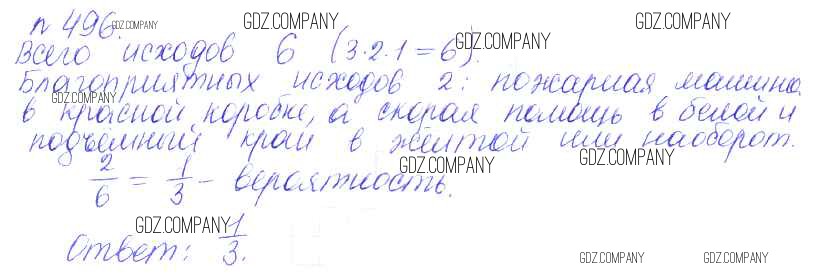 n 496.
Всего исходов 6 (3·2·1=6).
Благоприятных исходов 2: пожарная машина
в красной коробке, а скорая помощь в белой и
подъёмный кран в жёлтой или наоборот.
2/6 = 1/3 - вероятность.
Ответ: 1/3.
GDZ.COMPANY
GDZ.COMPANY
GDZ.COMPANY
GDZ.COMPANY
GDZ.COMPANY
GDZ.COMPANY
GDZ.COMPANY
GDZ.COMPANY
GDZ.COMPANY
GDZ.COMPANY